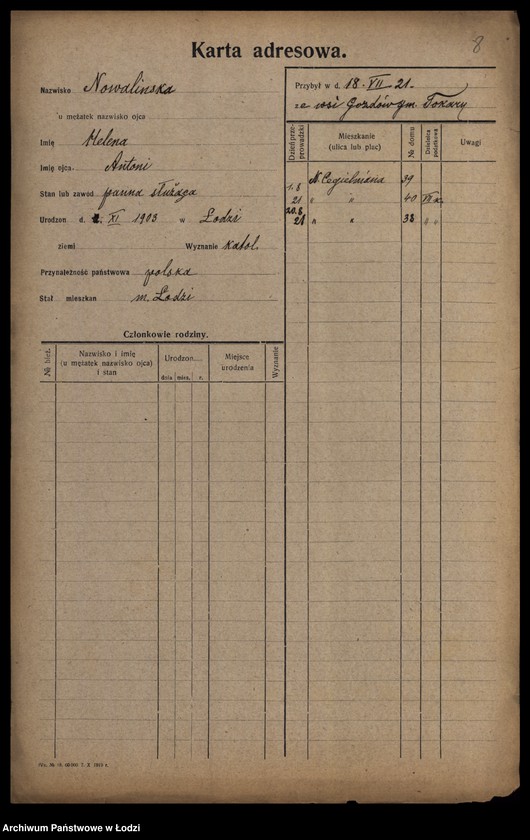 8
Karta adresowa.
Nazwisko Nowalinska
u mężatek nazwisko ojca
Imię Helena
Imię ojca Antoni
Stan lub zawód panna służąca
Urodzon d. XI 1903 w Łodzi
ziemi Wyznanie katol.
Przynależność państwowa polska
Stał mieszkan m. Łodzi
Członkowie rodziny.
№ bież. Nazwisko i imię (u mężatek nazwisko ojca) i stan Urodzon.... dnia mies. r. Miejsce urodzenia Wyznanie
Przybył w d. 18 VII 21.
ze wsi Gozdów gm. Tokary
Dzień przeprowadzki Mieszkanie (ulica lub plac) № domu Dzielnica podatkowa Uwagi
1.8 N. Cegielniana 39
21 " " 40 VII a.
20.8
21 " " 38 " "
Archiwum Państwowe w Łodzi